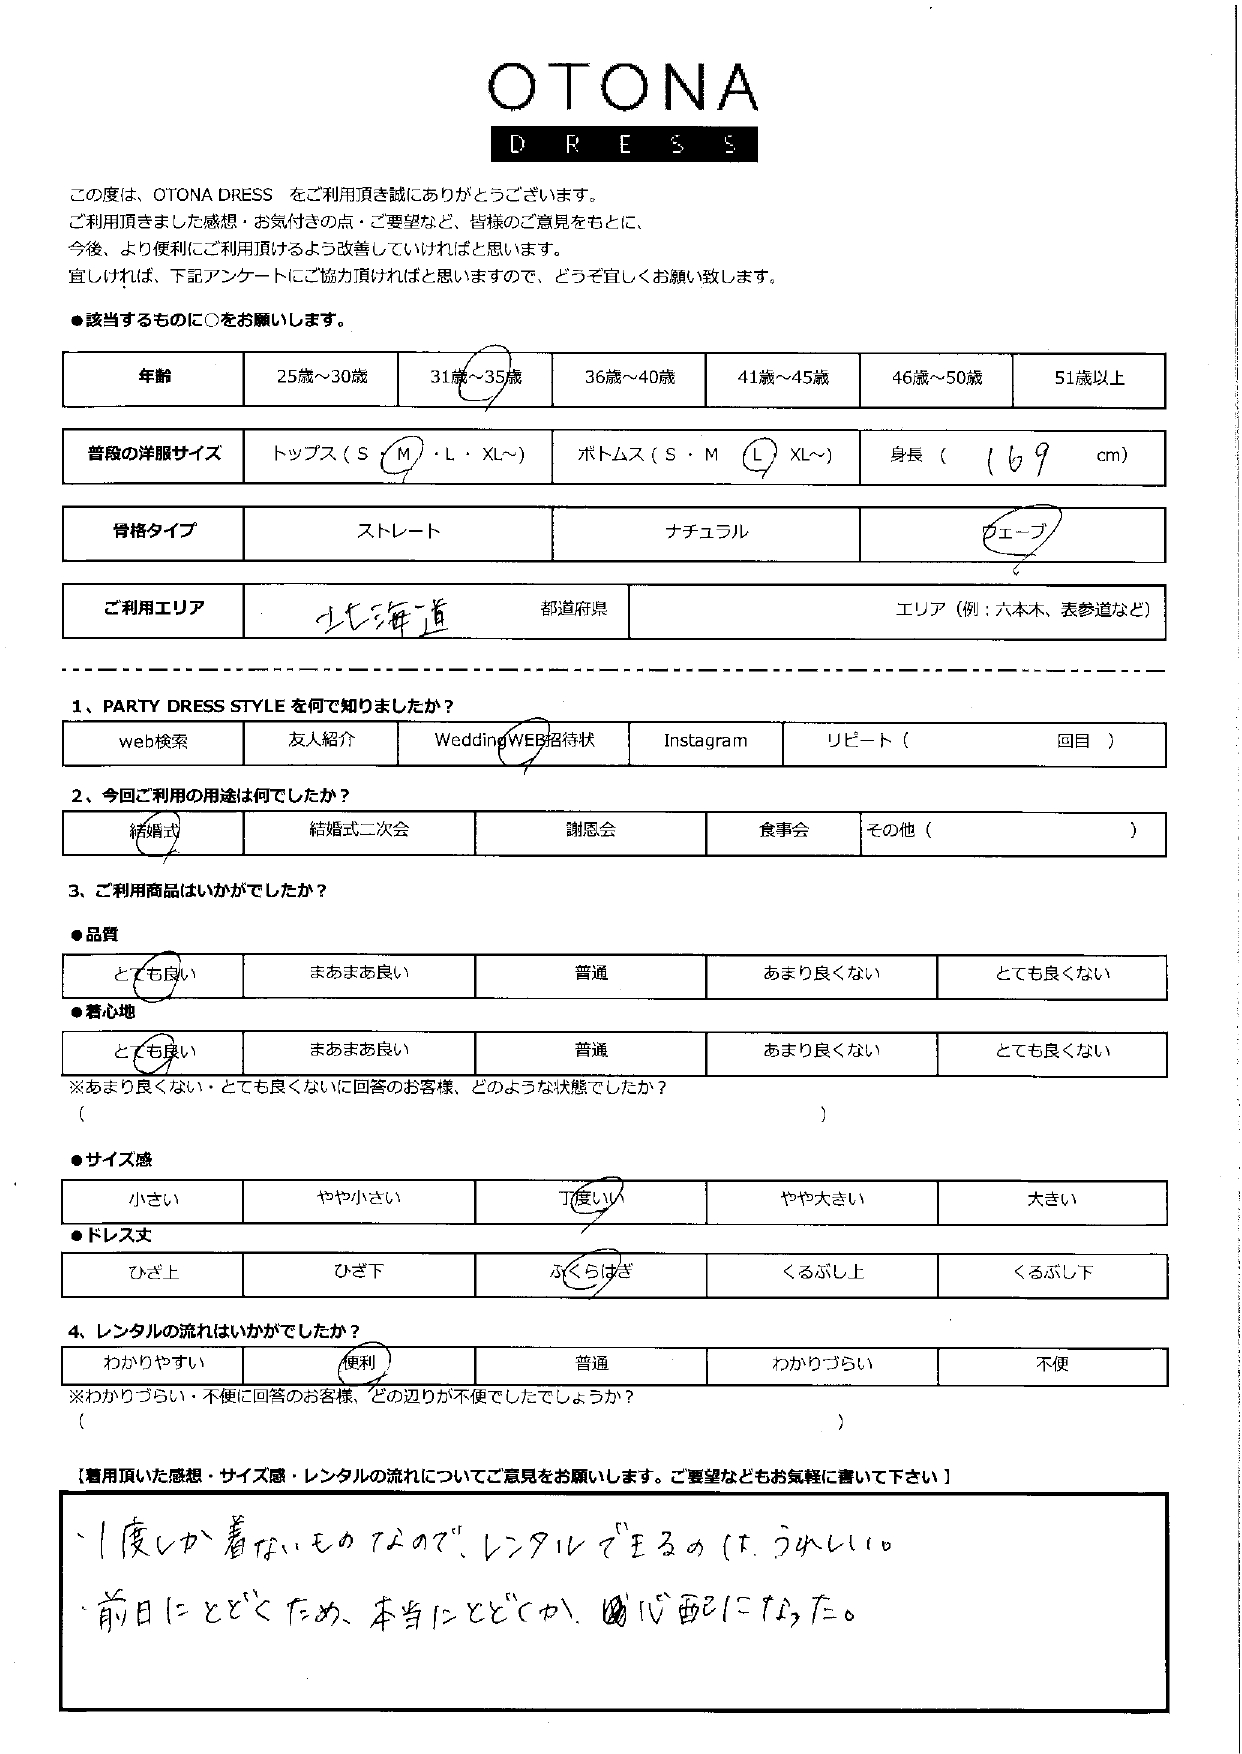 OTONA
DRESS
この度は、OTONA DRESS　をご利用頂き誠にありがとうございます。
ご利用頂きました感想・お気付きの点・ご要望など、皆様のご意見をもとに、
今後、より便利にご利用頂けるよう改善していければと思います。
宜しければ、下記アンケートにご協力頂ければと思いますので、どうぞ宜しくお願い致します。
●該当するものに○をお願いします。
年齢 25歳～30歳 31歳～35歳 36歳～40歳 41歳～45歳 46歳～50歳 51歳以上
普段の洋服サイズ トップス ( S ・ M ・ L ・ XL～) ボトムス ( S ・ M L XL～) 身長 ( 169 cm)
骨格タイプ ストレート ナチュラル ウェーブ
ご利用エリア 北海道 都道府県 エリア（例：六本木、表参道など）
1、PARTY DRESS STYLE を何で知りましたか？
web検索 友人紹介 WeddingWEB招待状 Instagram リピート（ 回目 ）
2、今回ご利用の用途は何でしたか？
結婚式 結婚式二次会 謝恩会 食事会 その他（ ）
3、ご利用商品はいかがでしたか？
●品質
とても良い まあまあ良い 普通 あまり良くない とても良くない
●着心地
とても良い まあまあ良い 普通 あまり良くない とても良くない
※あまり良くない・とても良くないに回答のお客様、どのような状態でしたか？
（ ）
●サイズ感
小さい やや小さい 丁度いい やや大きい 大きい
●ドレス丈
ひざ上 ひざ下 ふくらはぎ くるぶし上 くるぶし下
4、レンタルの流れはいかがでしたか？
わかりやすい 便利 普通 わかりづらい 不便
※わかりづらい・不便に回答のお客様、どの辺りが不便でしたでしょうか？
（ ）
【着用頂いた感想・サイズ感・レンタルの流れについてご意見をお願いします。ご要望などもお気軽に書いて下さい】
・1度しか着ないものなので、レンタルできるのは、うれしい。
・前日にとどくため、本当にとどくか、心配になった。